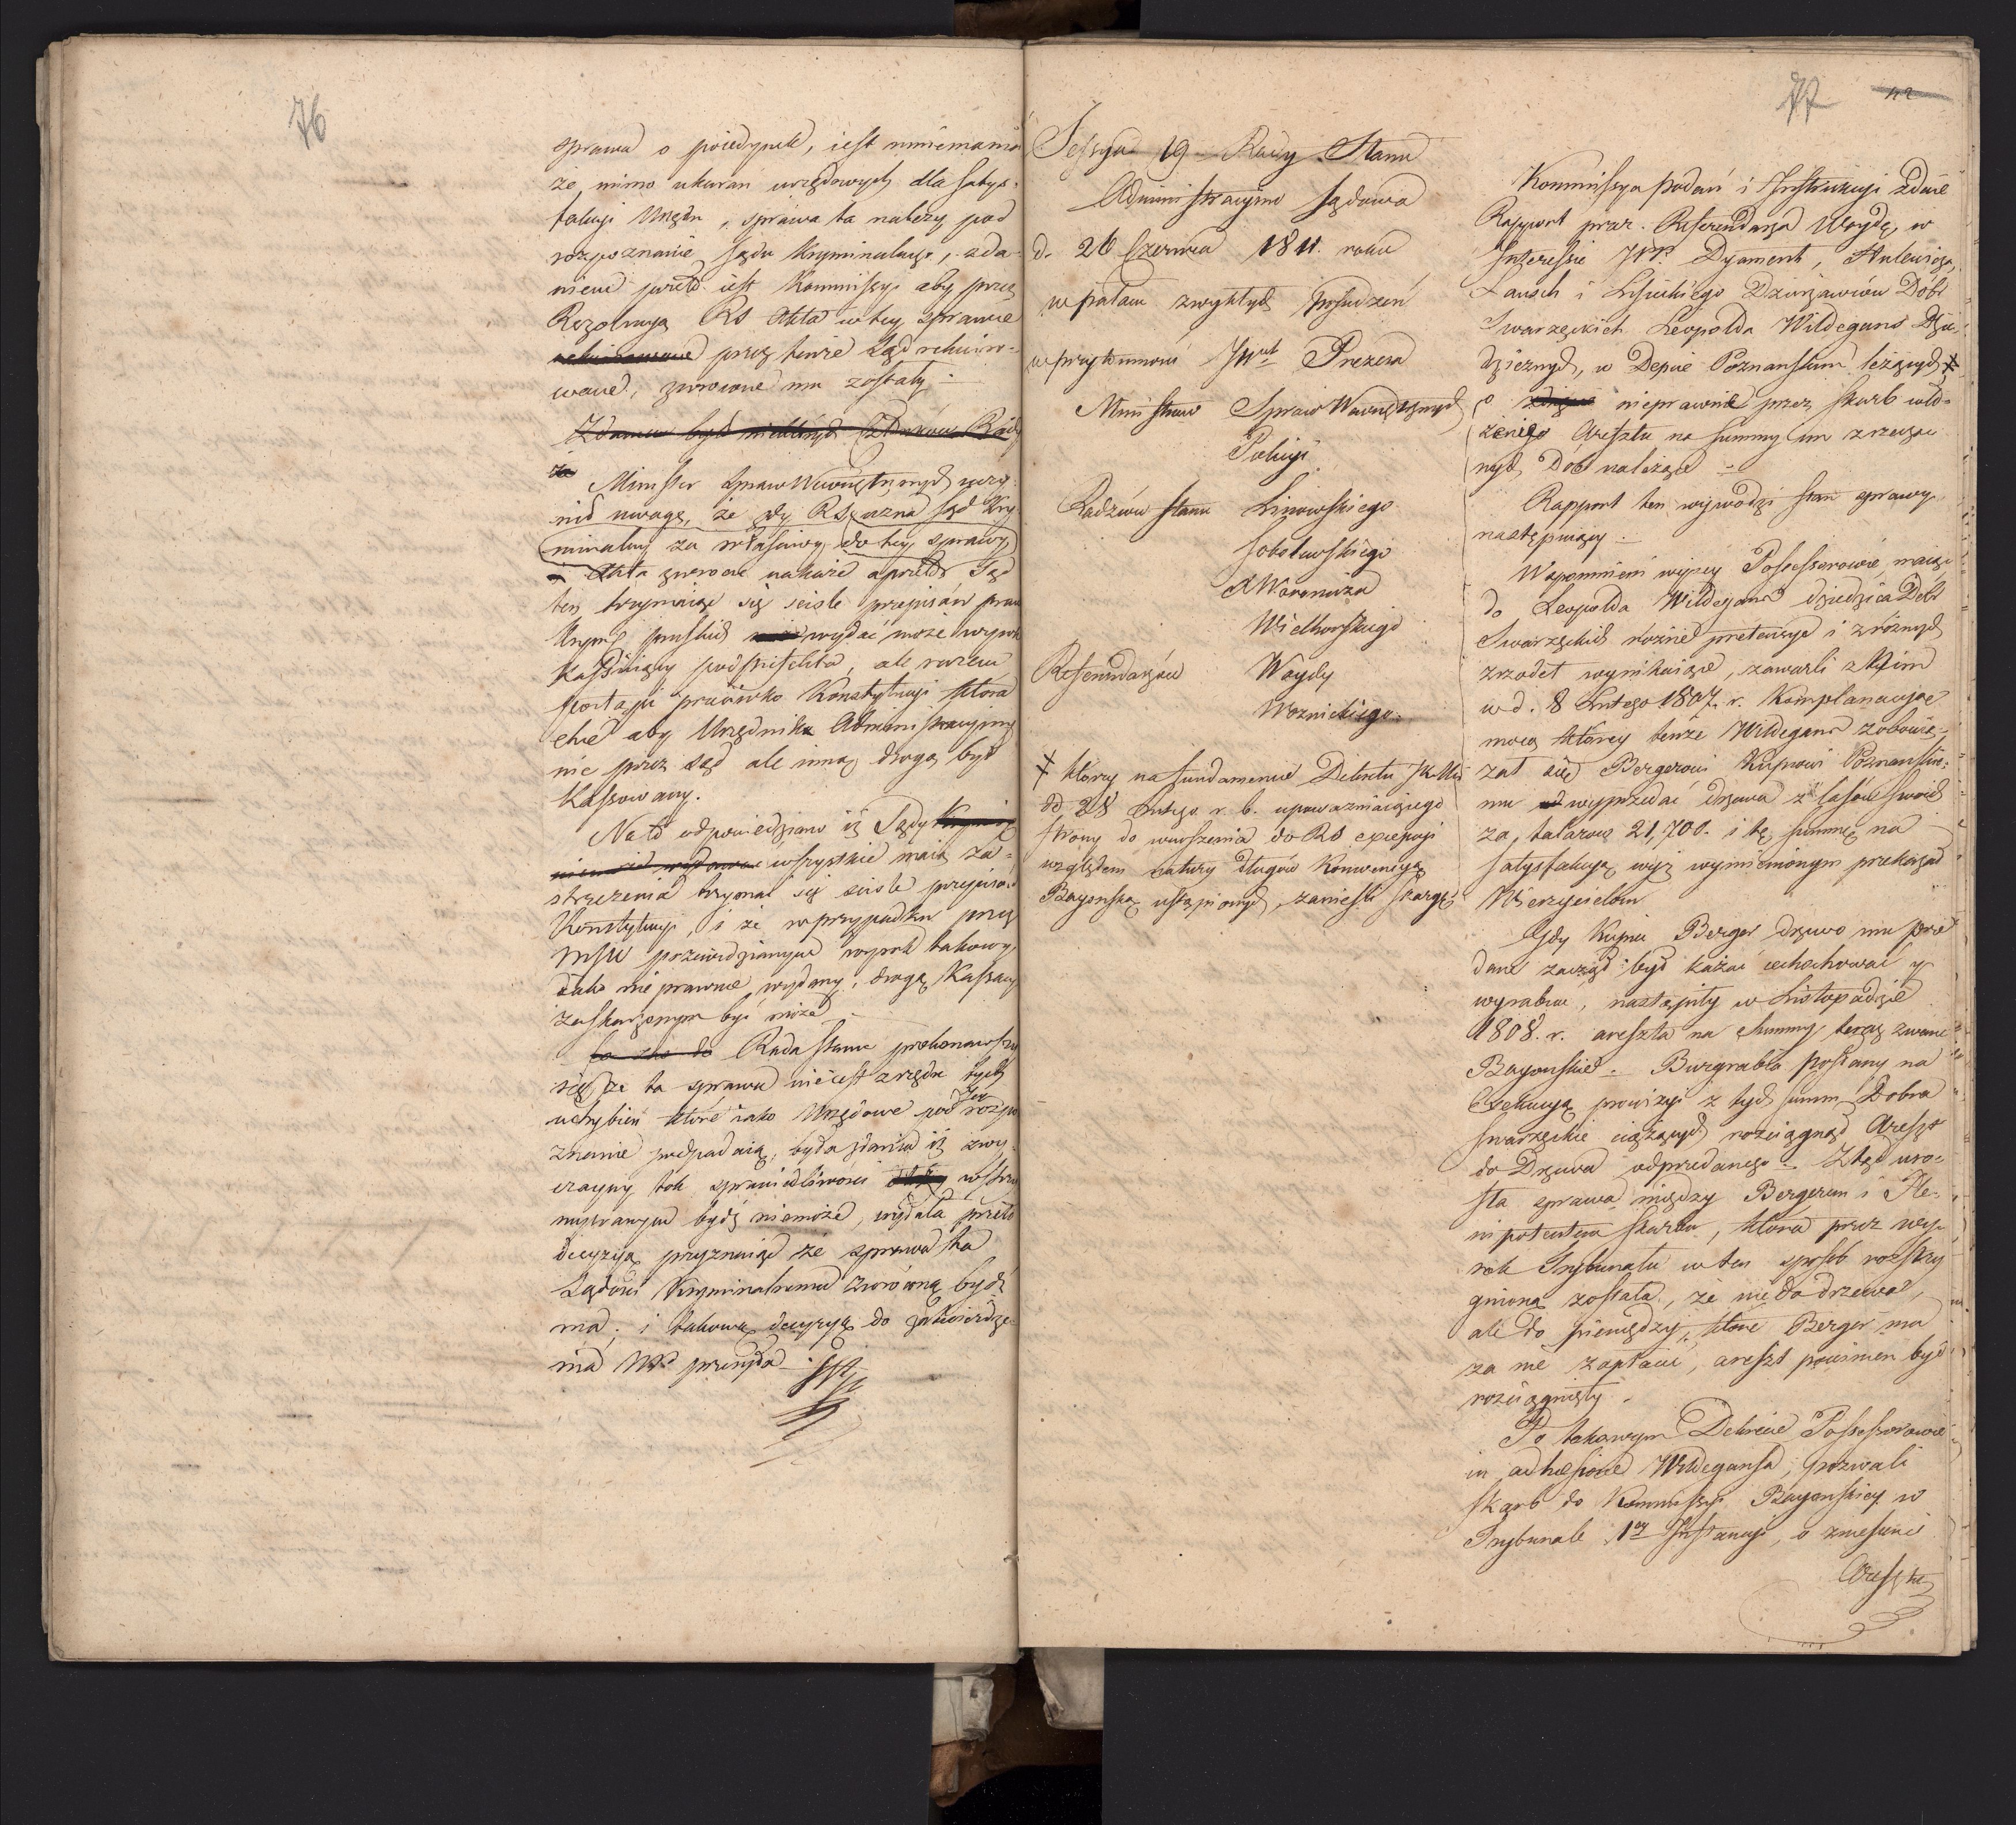 76
sprawa o poiedynek, iest mniemania
że, mimo ukarań urzędowych dla satys-
fakcyi Urzędu, sprawa ta należy pod
rozpoznanie Sądu Kryminalnego, zda-
niem przeto iest Kommissyi aby przez
Rezolucyą RS Akta w tey sprawie
przez tenże Sąd rekwiro-
wane, zwrócone mu zostały.
Zdaniem było niektórych Członków Rady
że
Minister Spraw Wewnętrznych uczy-
nił uwagę, że gdy RS uzna Sąd Kry
minalny za właściwy do tey sprawy,
i Akta zwrócić nakaże a przeto Sąd
ten trzymaiąc się ściśle przepisów praw
Krym: pruskich wydać może wyrok
Kassuiący podprefekta, ale razem
postąpi przeciwko Konstytucyi która
chce aby Urzędnik Administracyiny
nie przez sąd ale inną drogą był
Kassowany.
Na to odpowiedziano iż Sądy
wszystkie maią za-
strzeżenie trzymać się ściśle przepisów
Konstytucyi, i że w przypadku przez
MSW przewidzianym wyrok takowy,
iako nieprawnie wydany, drogą Kassacyi
zaskarżonym być może.
Rada Stanu przekonawszy
się że ta sprawa nie iest z rzędu tych
uchybień które iako Urzędowe pod Jey rozpo
znanie podpadaią, była zdania iż zwy-
czayny tok sprawiedliwości wstrzy
mywanym bydź niemoże, wydała przeto
decyzyą przyznaiąc że sprawa ta
Sądowi Kryminalnemu zwróconą bydź
ma; i takową decyzyą do zatwierdze-
nia NP przesyła.
77 42
Sessya 19 Rady Stanu
Administracyino Sądowa
d. 26 Czerwca 1811. roku
w pałacu zwykłych posiedzeń
w przytomności JWch Prezesa
Ministrów Spraw Wewnętrznych
Policyi
Radzców Stanu Linowskiego
Sobolewskiego
X Woronicza
Wielhorskiego
Referendarzów Woydy
Woznickiego
‡ który na fundamencie Dekretu JKMci
dd 28 Lutego r. b. upoważniaiącego
strony do wnoszenia do RS excepcyi
względem natury długów Konwencyą
Bayonską ustąpionych, zanieśli skargę
Kommissya Podań i Instrukcyi zdaie
Rapport przez Referendarza Woydę, w
Interessie JPP. Dyament, Anlewicza,
Lauch i Lisieckiego Dzierżawców Dóbr
Swarzęckich Leopolda Wildegans Dzie-
dzicznych, w Depcie Poznanskim leżących ‡
o nieprawnie przez Skarb wło-
żonego Aresztu na summy im z rzeczo
nych Dóbr należące.
Rapport ten wywodzi stan sprawy
następuiący.
Wspomnieni wyżey Possessorowie, maiąc
do Leopolda Wildegans dziedzica Dóbr
Swarzęckich różne pretensye i z różnych
zrzodeł wynikaiące, zawarli z Nim
w d. 8 Lutego 1807. r. Komplanacyą
mocą którey tenże Wildegans zobowią-
zał się Bergerowi Kupcowi Poznanskie-
mu wyprzedać drzewa z lasów swoich
za talarów 21,700. i tę summę na
satysfakcyą wyż wymienionym przekazał
Wierzycielom.
Gdy Kupiec Berger drzewo mu prze
dane zaczął był kazać cechować y
wyrabiać, nastąpiły w Listopadzie
1808. r. areszta na Summy teraz zwane
Bayonskie. Burgrabia posłany na
Exekucyą prowizyi z tych summ Dobra
Swarzęckie ciążących rozciągnął Areszt
do Drzewa odprzedanego. Ztąd uro-
sła sprawa między Bergerem i Ple-
nipotentem Skarbu, która przez wy-
rok Trybunału w ten sposób rozstrzy
gnioną została, że nie do drzewa,
ale do pieniędzy, które Berger ma
za nie zapłacić, areszt powinien być
rozciągnięty.
Po takowym Dekrecie Possessorowie
in adhesione Wildegansa, pozwali
Skarb do Kommissyi Bayonskiey w
Trybunale 1ey Instancyi, o zniesienie
Aresztu